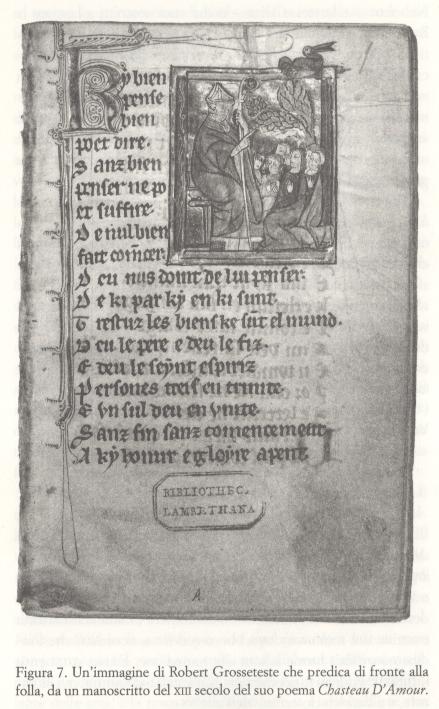 Ky bien
pense
bien
poet dire.
Sanz bien
penser ne po
et suffire.
De nul bien
fait com̄cer.
Deu nus doint de lui penser.
De ki par ky en ki sunt.
Trestuz les biens ke sūt el mund.
Deu le pere e deu le fiz.
E deu le seynt espiriz
Persones treis en trinite.
E vn sul deu en vnite.
Sanz fin sanz comencement.
A ky honur e gloyre apent.
BIBLIOTHEC.
LAMBETHANA
A
Figura 7. Un'immagine di Robert Grosseteste che predica di fronte alla
folla, da un manoscritto del XIII secolo del suo poema Chasteau D'Amour.